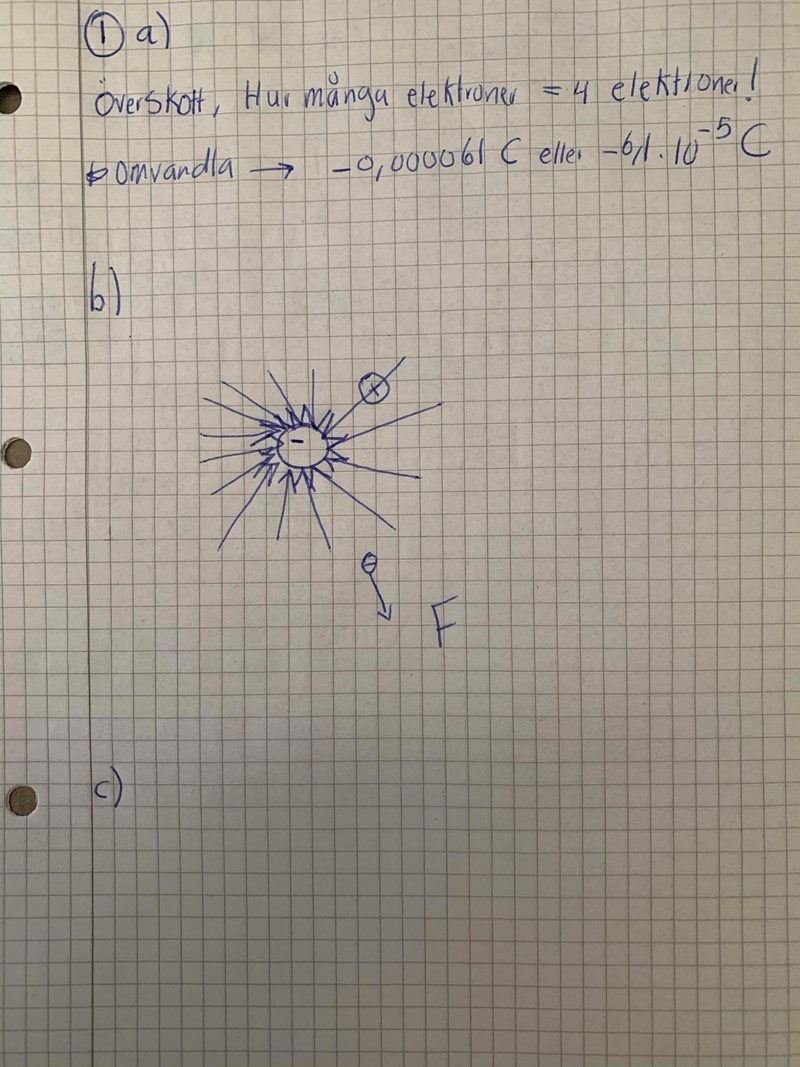 ① a)
Överskott, Hur många elektroner = 4 elektroner!
Omvandla → -0,000061 C eller -6,1 · 10⁻⁵ C
b)
-
F
c)